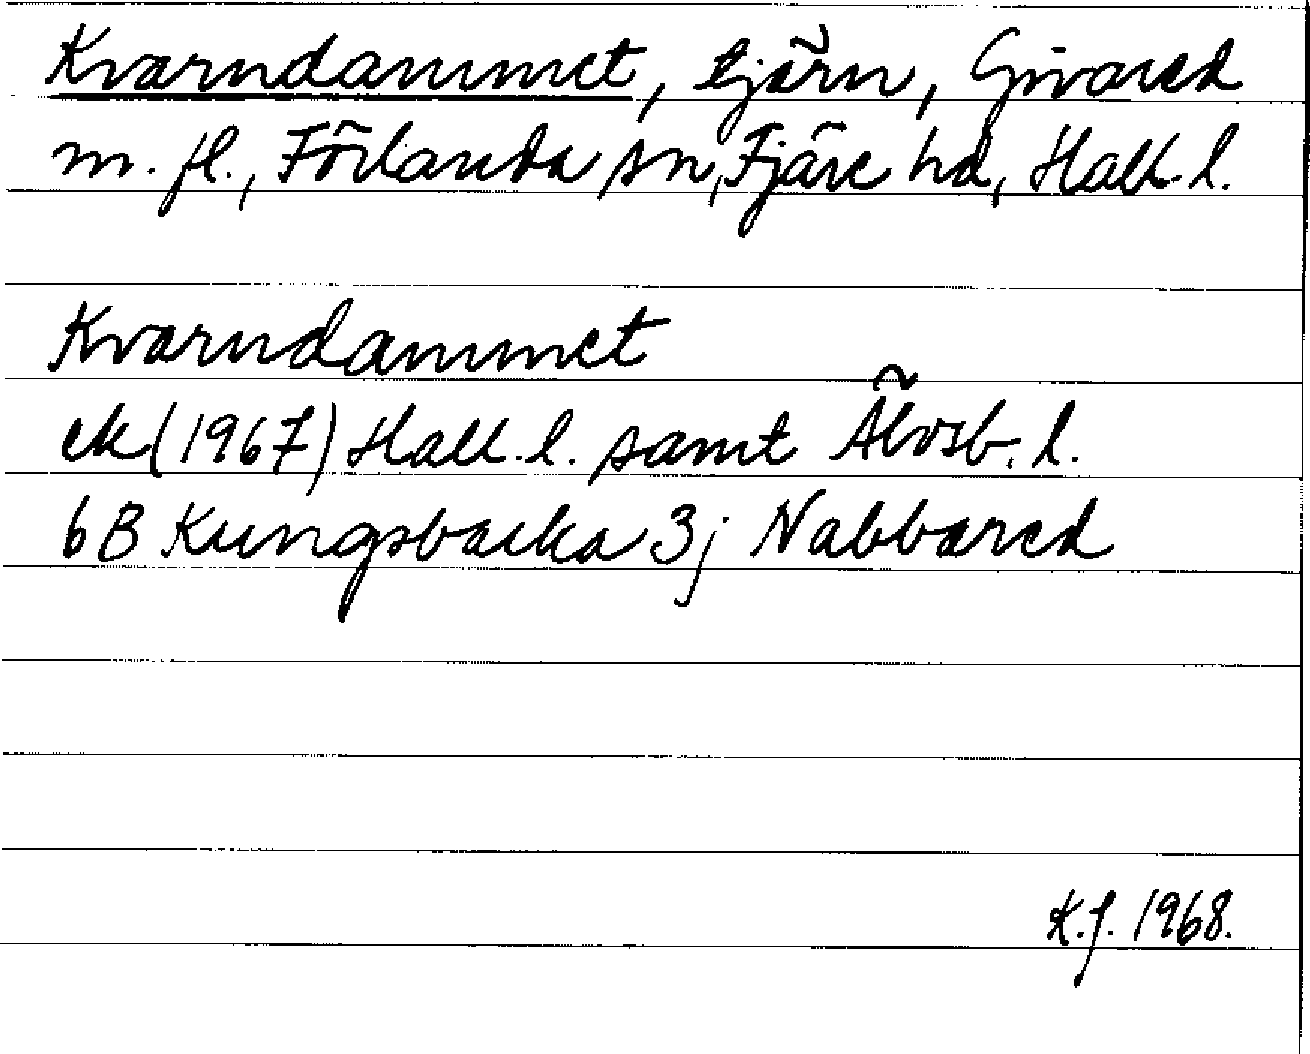 Kvarndammet, tjärn, Givared
m. fl., Förlanda sn, Fjäre hd, Hall. l.
Kvarndammet
ek (1967) Hall. l. samt Älvsb. l.
6B Kungsbacka 3j Nabbared
K.J. 1968.